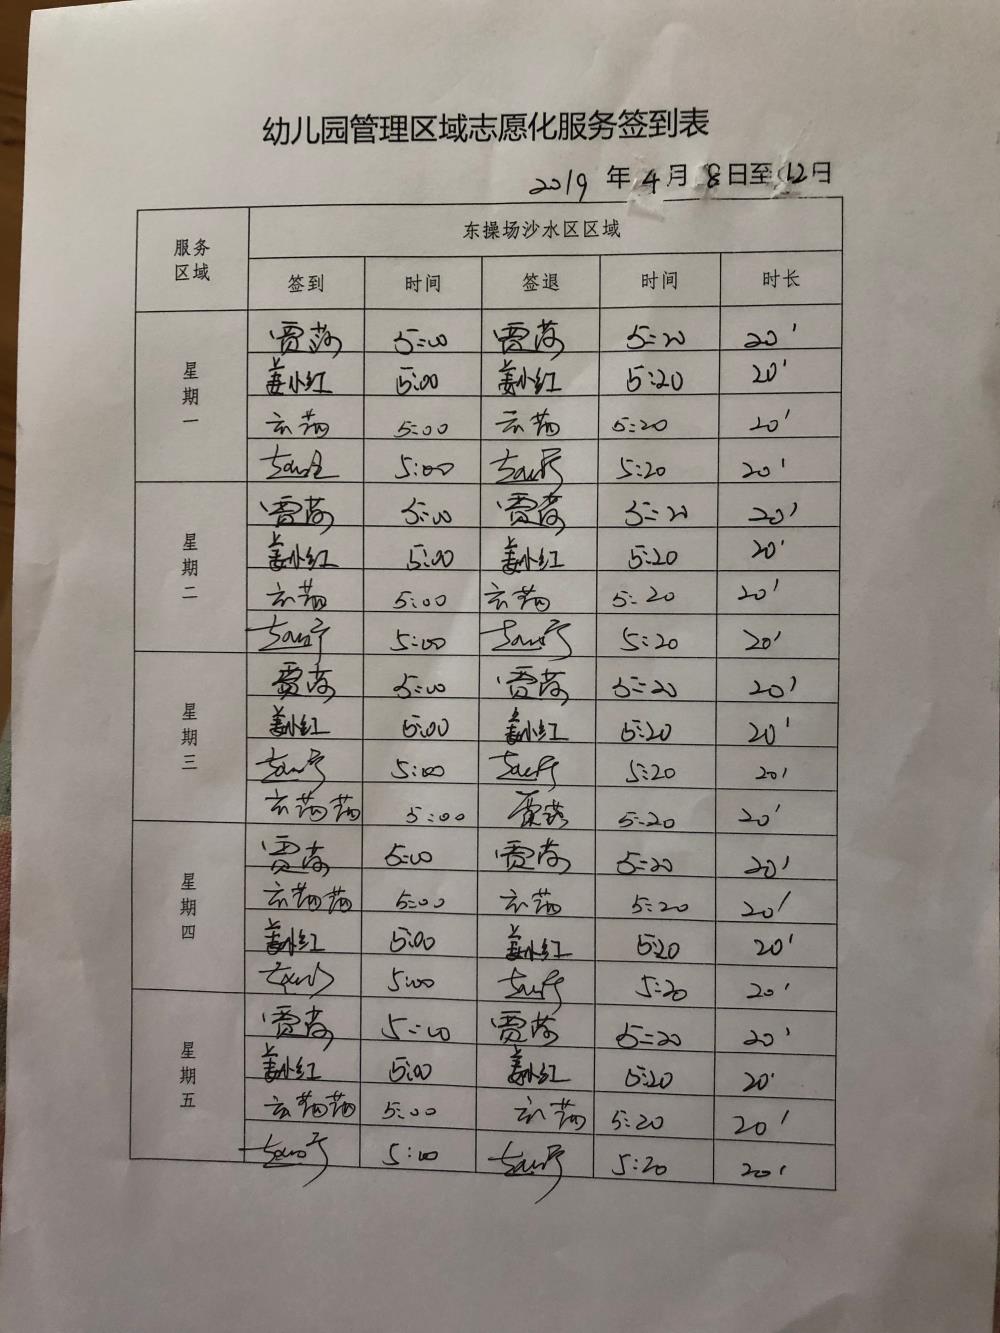 幼儿园管理区域志愿化服务签到表
2019 年 4 月 8 日至 12 日
服务区域 东操场沙水区区域
签到 时间 签退 时间 时长
星期一
贾 5:00 贾 5:20 20'
姜小红 5:00 姜小红 5:20 20'
5:00 5:20 20'
5:00 5:20 20'
星期二
贾 5:00 贾 5:20 20'
姜小红 5:00 姜小红 5:20 20'
5:00 5:20 20'
5:00 5:20 20'
星期三
贾 5:00 贾 5:20 20'
姜小红 5:00 姜小红 5:20 20'
5:00 5:20 20'
5:00 5:20 20'
星期四
贾 5:00 贾 5:20 20'
5:00 5:20 20'
姜小红 5:00 姜小红 5:20 20'
5:00 5:20 20'
星期五
贾 5:00 贾 5:20 20'
姜小红 5:00 姜小红 5:20 20'
5:00 5:20 20'
5:00 5:20 20'